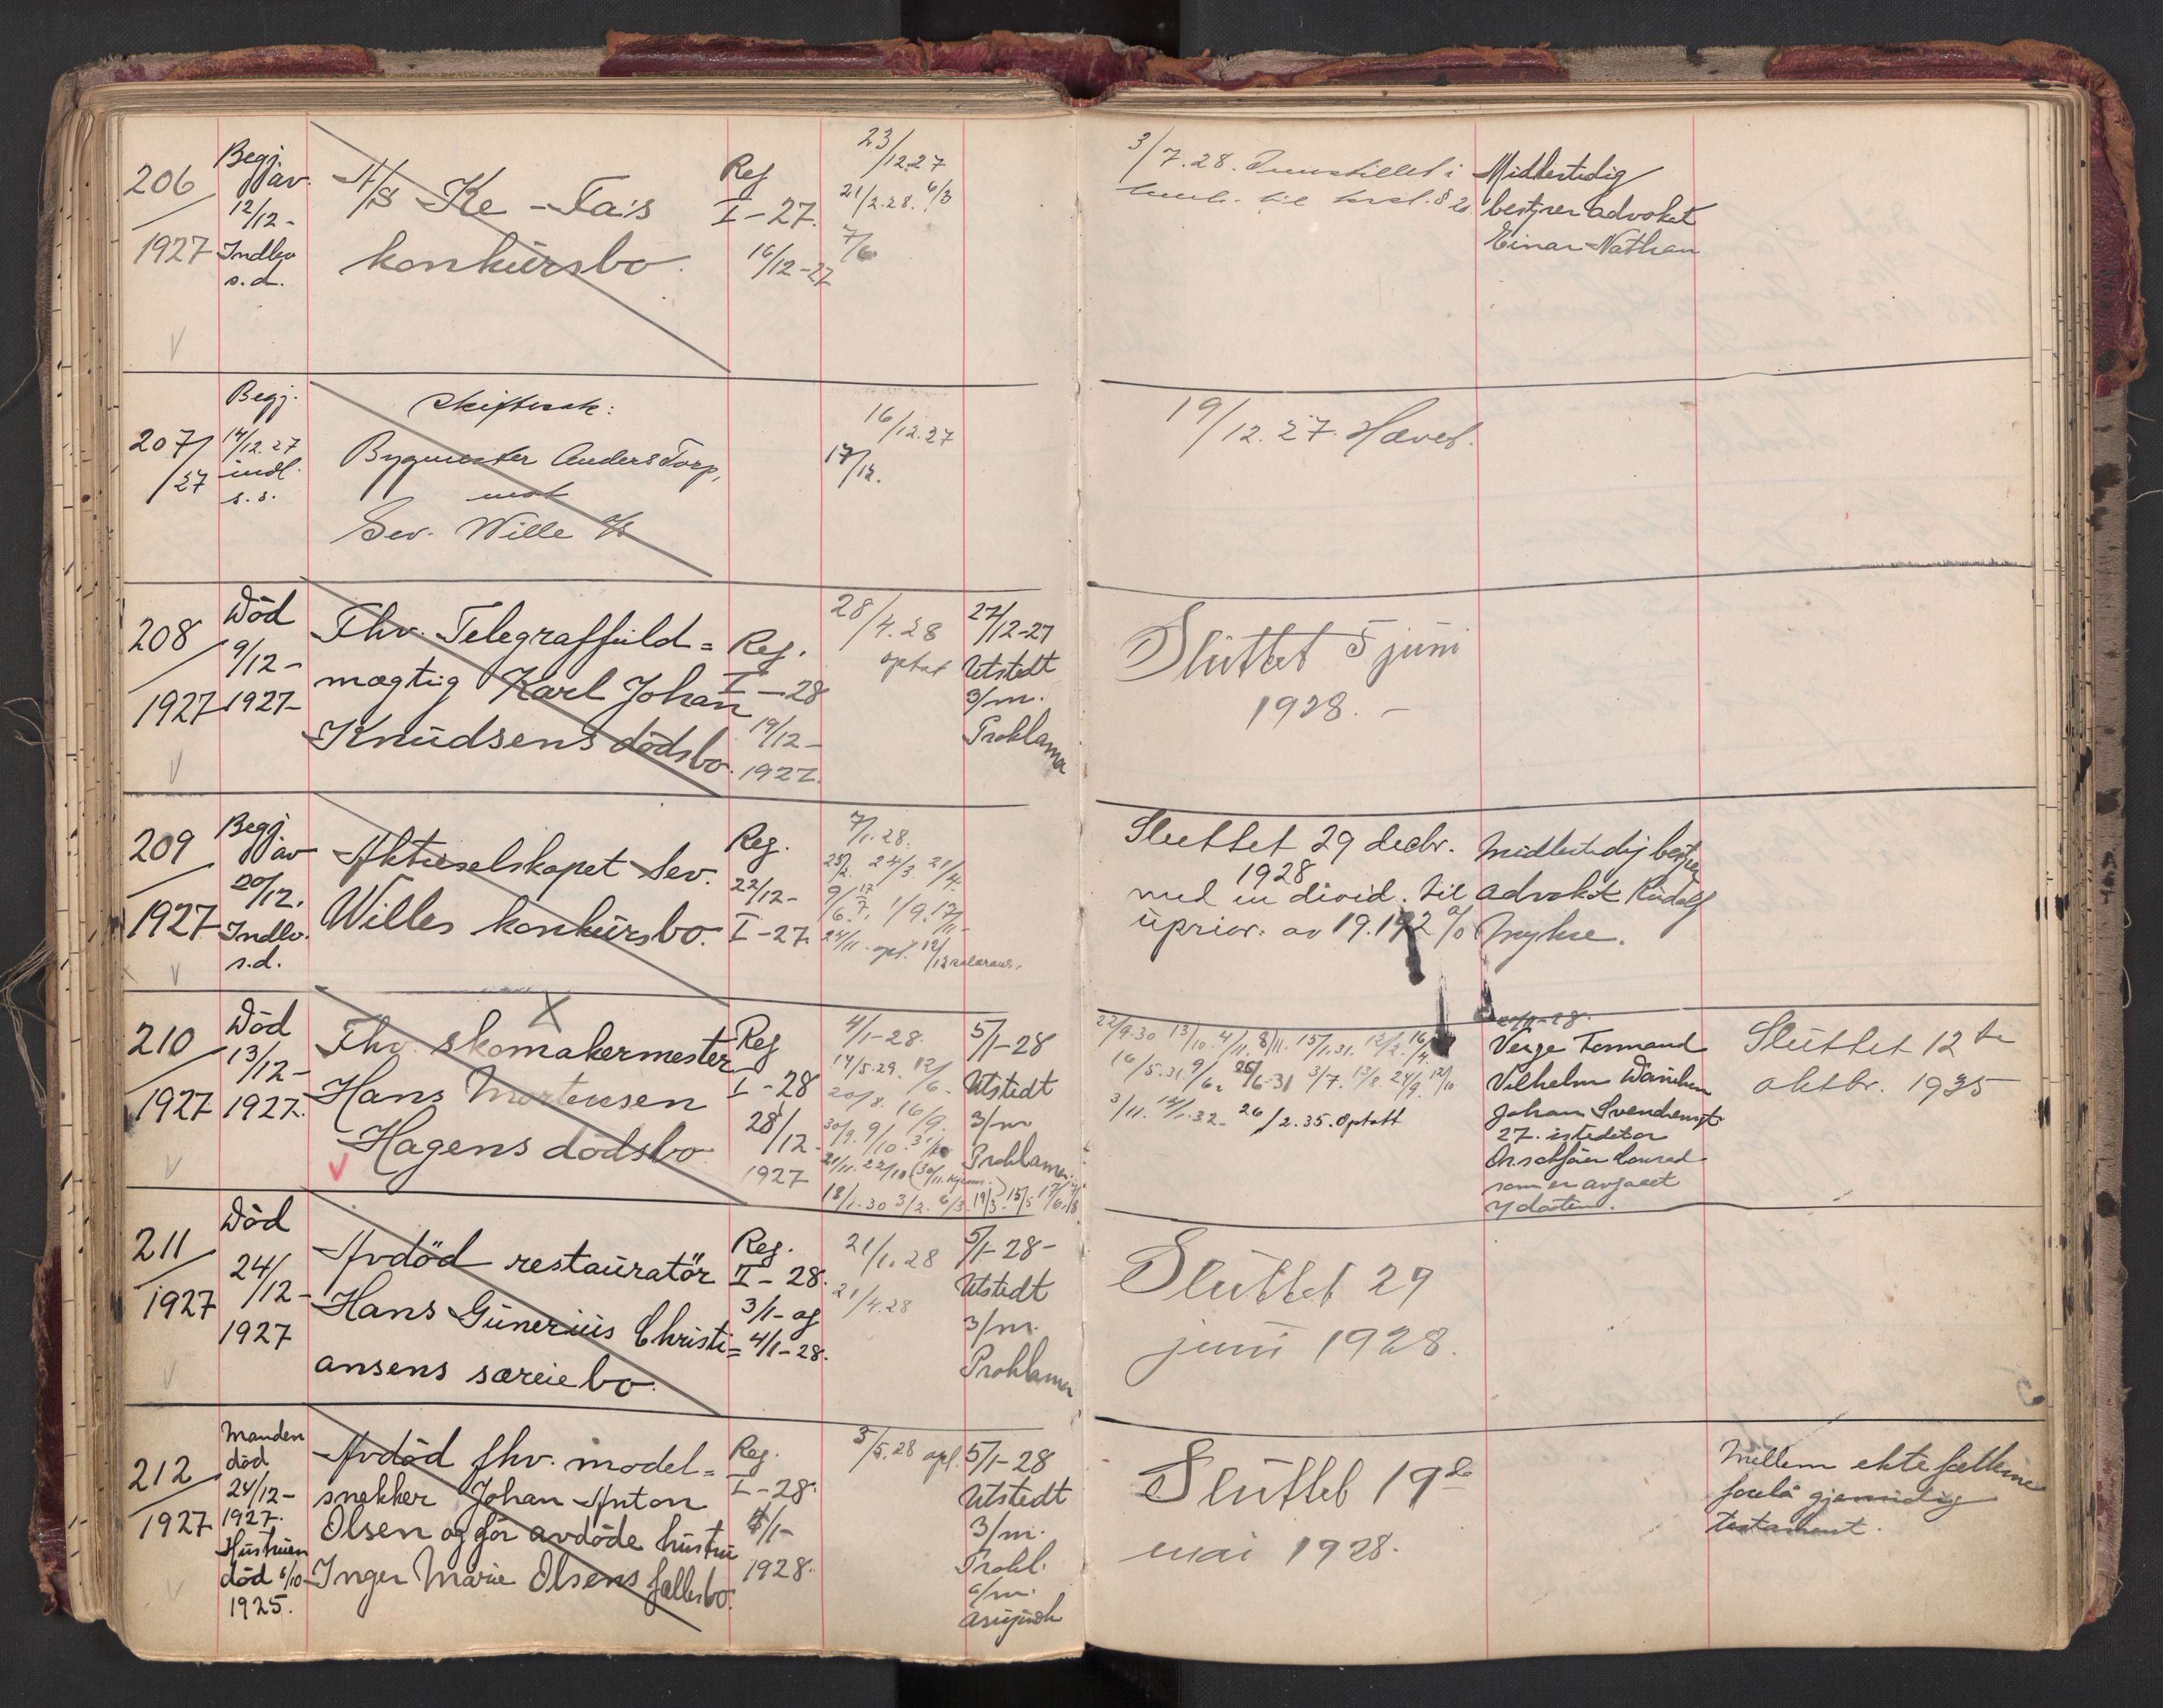 206
1927
Begj.
av
12/12 -
Indlev
s.d.
A/S Ke - Ta's
konkursbo.
Reg
I - 27.
16/12 - 27
23/12 27
21/2.28. 6/3
7/6
3/7.28. Innstillet i
Midlertidig
bestyrer advokat
Einar Nathan
207
/27
Begj.
14/12.27
indl.
s.d.
Skiftesak:
Bygmester Anders Torp,
mot
Sev. Wille A/S
16/12.27
17/12.
19/12.27. Hævet.
208
1927
Död
9/12 -
1927 -
Fhv. Telegraffuld =
mægtig Karl Johan
Knudsens dödsbo.
Reg.
I - 28
19/12 -
1927.
28/4.28
optat
27/12 - 27
Utstedt
3/m.
Proklama
Sluttet 5 juni
1928. -
209
1927
Begj
av
20/12.
Indlev.
s.d.
Aktieselskapet Sev.
Willes konkursbo.
Reg.
22/12 -
I - 27.
7/1.28.
25/2. 24/3. 21/4.
24/11. opl.
Sluttet 29 decbr.
1928
med en divid. til
uprior. av 19.192 %
Midlertidig bestyrer
advokat Rudolf
Myhre.
210
1927
Död
13/12 -
1927.
X
Fhv. skomakermester
Hans Mortensen
Hagens dödsbo
Reg
I - 28
28/12 -
1927
4/1 - 28.
14/5.29. 12/6 -
20/8. 16/9.
30/9. 9/10. 31/10
18/1.30 3/2. 6/3. 19/3. 15/5 17/6
5/1 - 28
Utstedt
3/m
Proklama
22/9.30 13/10. 4/11. 8/11. 15/1.31. 12/2. 16/4.
16/5.31. 9/6. 25/6.31 3/7. 13/8. 24/9. 12/10
3/11. 14/1.32 - 26/2.35. Optatt
Verge Formand
Vilhelm
Johan Svendsensgt
27. istedetfor
som er avgaaet
v döden.
Sluttet 12 te
oktbr. 1935
211
1927
Död
24/12 -
1927
Avdöd restauratör
Hans Gunerius Christi =
ansens særeiebo.
Reg.
I - 28.
3/1 - og
4/1 - 28.
21/1.28
21/4.28
5/1 - 28 -
Utstedt
3/m.
Proklama
Sluttet 29
juni 1928.
212
1927
Manden
död
24/12 -
1927.
Hustruen
död 6/10
1925.
Avdöd fhv. model =
snekker Johan Anton
Olsen og för avdöde hustru
Inger Marie Olsens fællesbo.
Reg.
I - 28.
4/1 -
1928.
5/5.28 opl.
5/1 - 28
Utstedt
3/m.
Prokl.
6/m.
Sluttet 19de
mai 1928.
Mellem ektefællerne
forelå gjensidig
testament.